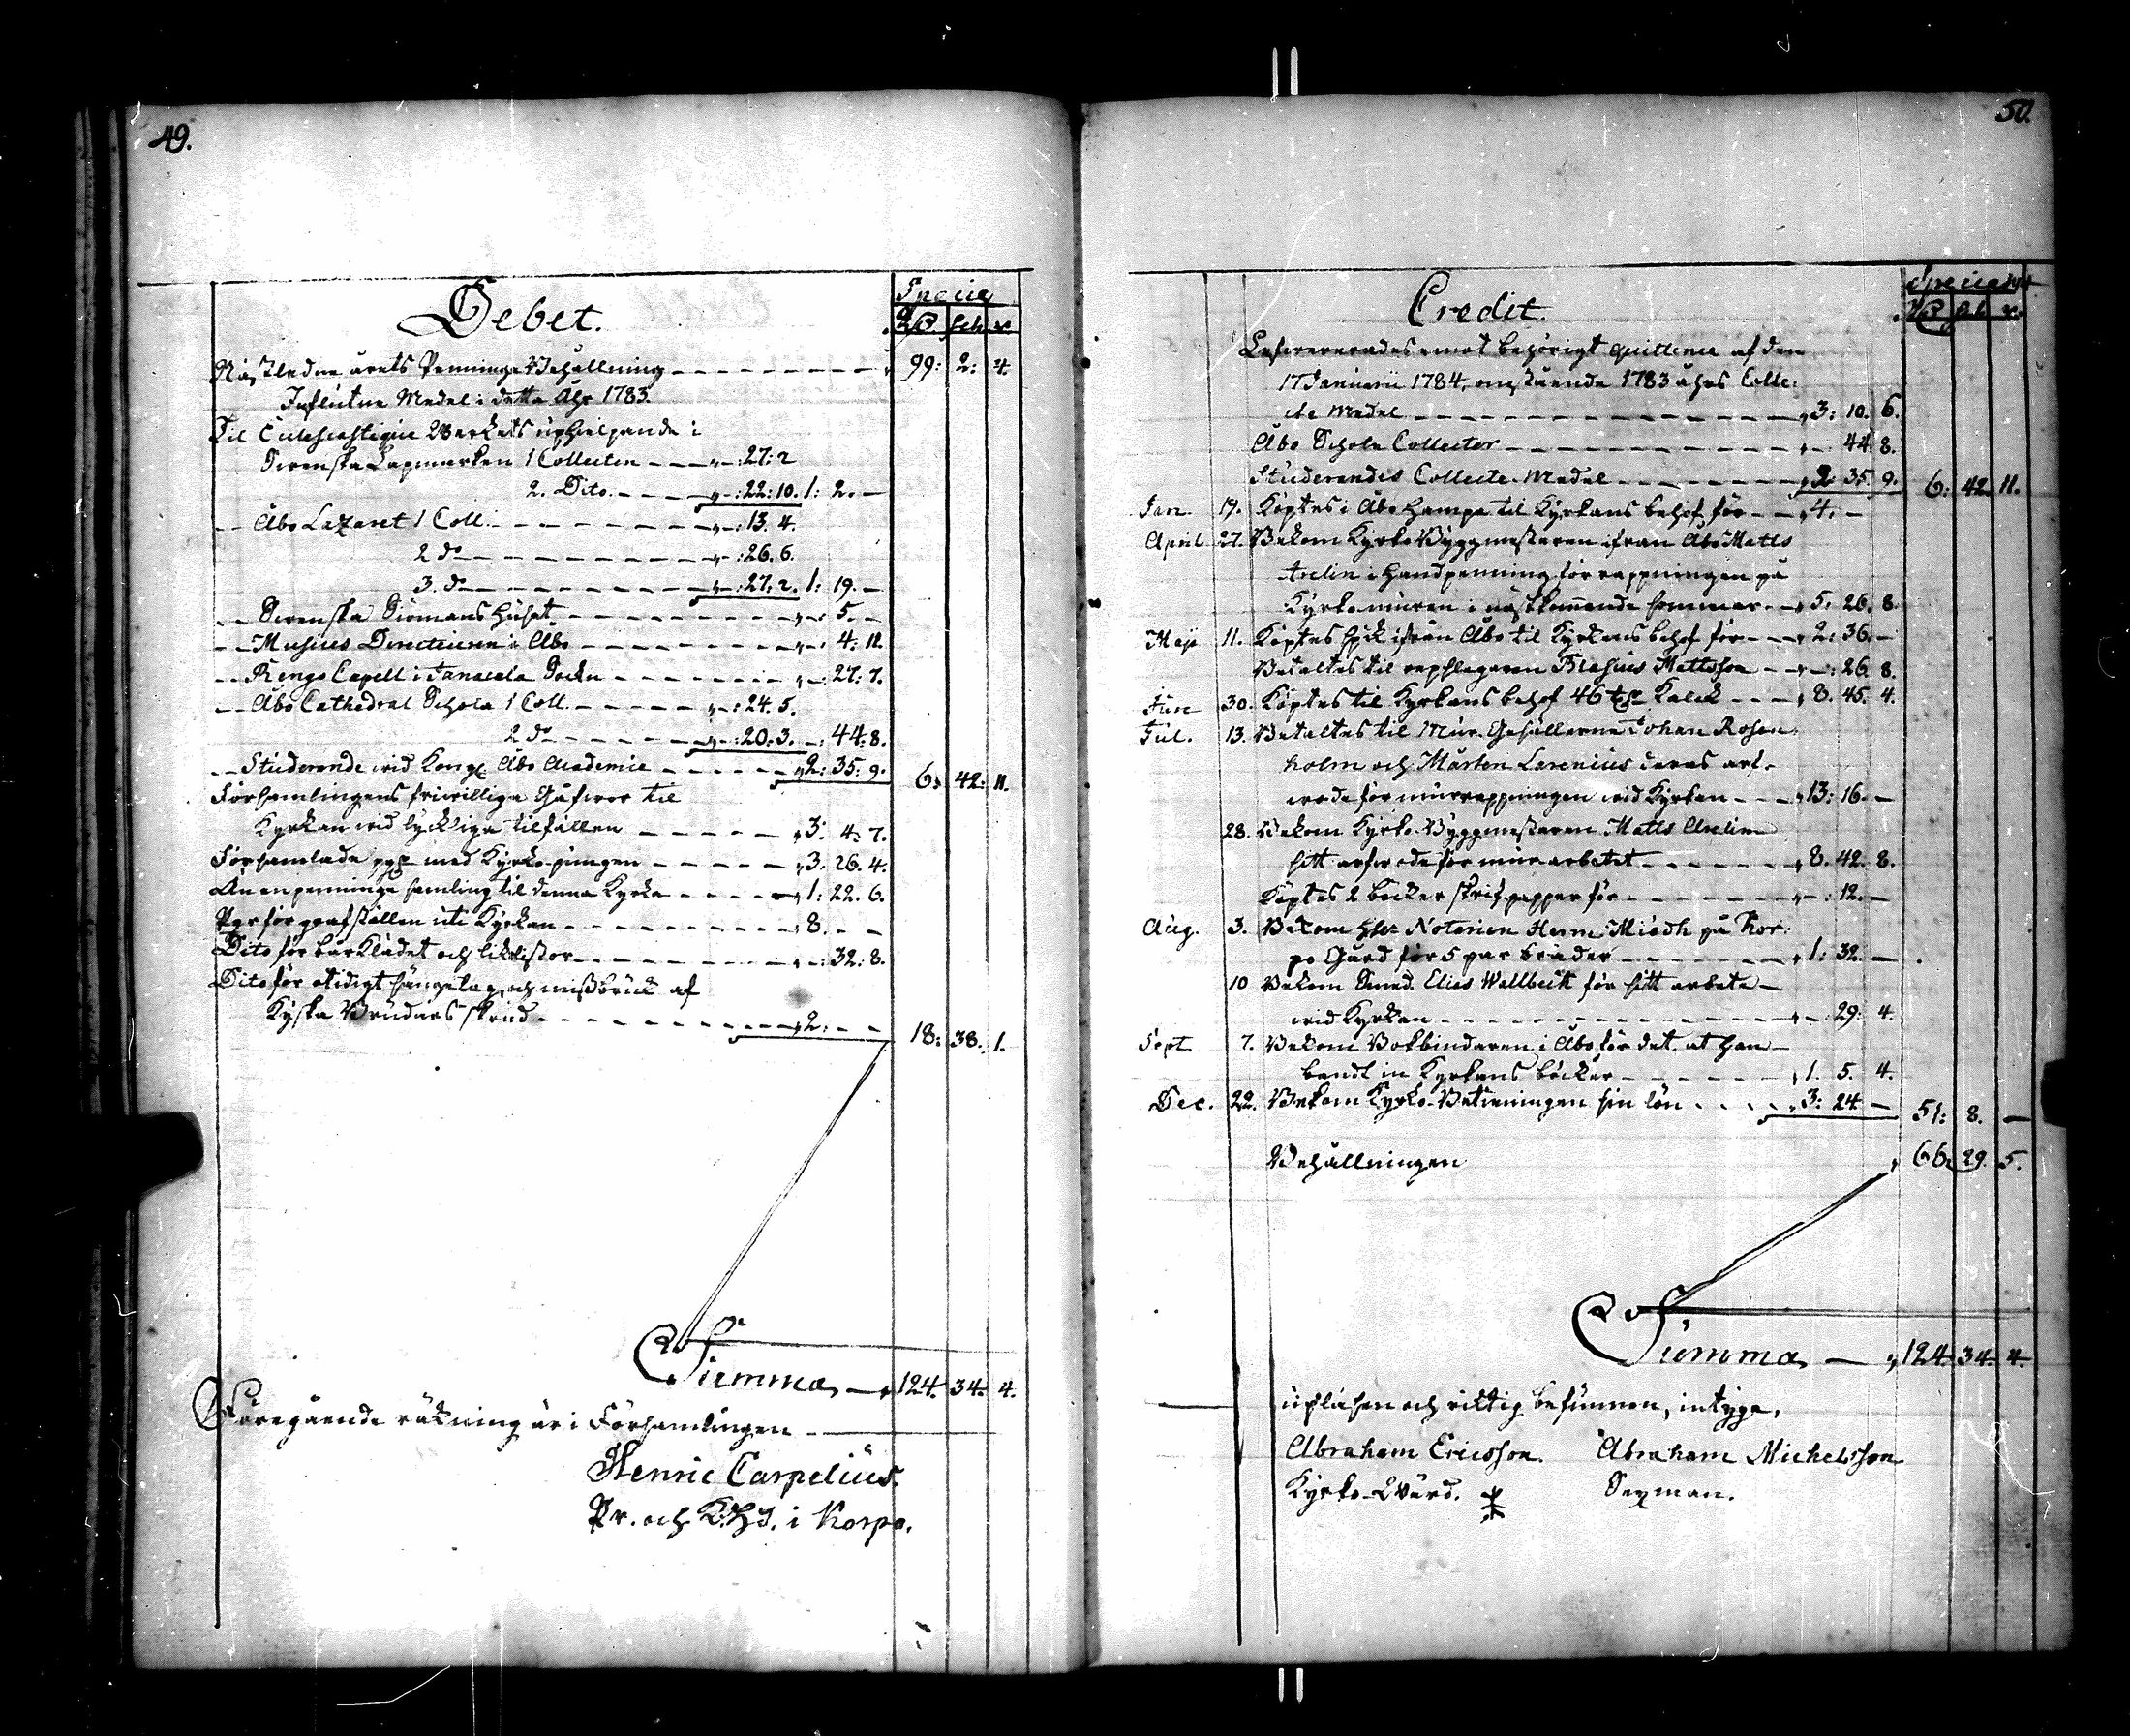 49.
Debet.
Specie
Rd. sch. r.
Näst ledne årets Penninge Behållning 99: 2: 4.
Influtne Medel i detta Åhr 1783.
Til Ecclesiastique Werkets uphielpande i
Swenska Lapmarken 1 Collecten -: 27: 2
2. Dito. -: 22: 10. 1: 2. -
Åbo Lazaret 1 Coll. -: 13. 4.
2 do -: 26. 6.
3. do -: 27: 2. 1: 19. -
Swenska Siömans Huset -: 5. -
Musices Directeuren i Åbo -: 4: 11.
Rengo Capell i Janacala Sockn -: 27: 7.
Åbo Cathedral Schola 1 Coll. -: 24. 5.
2 do -: 20: 3. -: 44: 8.
Studerande wid Kongl. Åbo Academie 2: 35: 9. 6: 42: 11.
Församlingens friwilliga Gåfwor til
Kyrkan wid lyckliga tilfällen 3: 4: 7.
Församlade pgr med Kyrko-pungen 3: 26. 4.
Än en penninge samling til denna Kyrka 1: 22. 6.
Pgr för grafställen uti Kyrkan 8. - -
Dito för bårklädet och likkistor -: 32: 8.
Dito för otidigt sängelag, och missbruk af
Kyska Brudars skrud 2: - - 18: 38. 1.
Summa 124. 34. 4.
Föregående räkning är i Församlingen
Henric Carpelius.
Pr. och K.H.d. i Korpo.
50.
Credit.
Specie
Rd. sch. r.
Lefwererades emot behörigt quittence af den
17 Januarii 1784, omstående 1783 åhrs Colle-
cte Medel 3: 10. 6.
Åbo Schola Collecter - 44 8.
Studerandes Collecte-Medel 2: 35 9. 6: 42. 11.
Jan. 19. Köptes i Åbo Hampa til Kyrkans behof för 4. -
April 27. Bekom Kyrko Byggmästaren ifrån Åbo Matts
Arelin i Handpenning för rappningen på
Kyrko muren i nästkommande sommar 5. 26. 8.
Maji 11. Köptes spik ifrån Åbo til Kyrkans behof för 2: 36. -
Betaltes til repslagaren Blasius Mattsson -: 26. 8.
Jun 30. Köptes til Kyrkans behof 46 tr Kalck 8. 45. 4.
Jul. 13. Betaltes til Mur-Gesällerne Johan Rosen-
holm och Mårten Larenius deras arf-
wode för murrappningen wid Kyrkan 13: 16. -
28. Bekom Kyrko-Byggmästaren Matts Arelin
sitt arfwode för mur arbetet 8. 42. 8.
Köptes 2 böcker skrif papper för -: 12. -
Aug. 3. Bekom Herr Notarien Herm: Miödh på Kor-
po Gård för 5 par bräder 1: 32. -
10 Bekom Smed. Elias Wallbeck för sitt arbete
wid Kyrkan -: 29: 4.
Sept. 7. Bekom Bokbindaren i Åbo för det, at han
bandt in Kyrkans böcker 1. 5. 4.
Dec. 22. Bekom Kyrko-Betieningen sin lön 3: 24 - 51: 8. -
Behållningen 66. 29. 5.
Summa 124. 34. 4.
upläsen och riktig befunnen, intyga,
Abraham Ericsson. Abraham Michelsson
Kyrko-Wärd. Sexman.